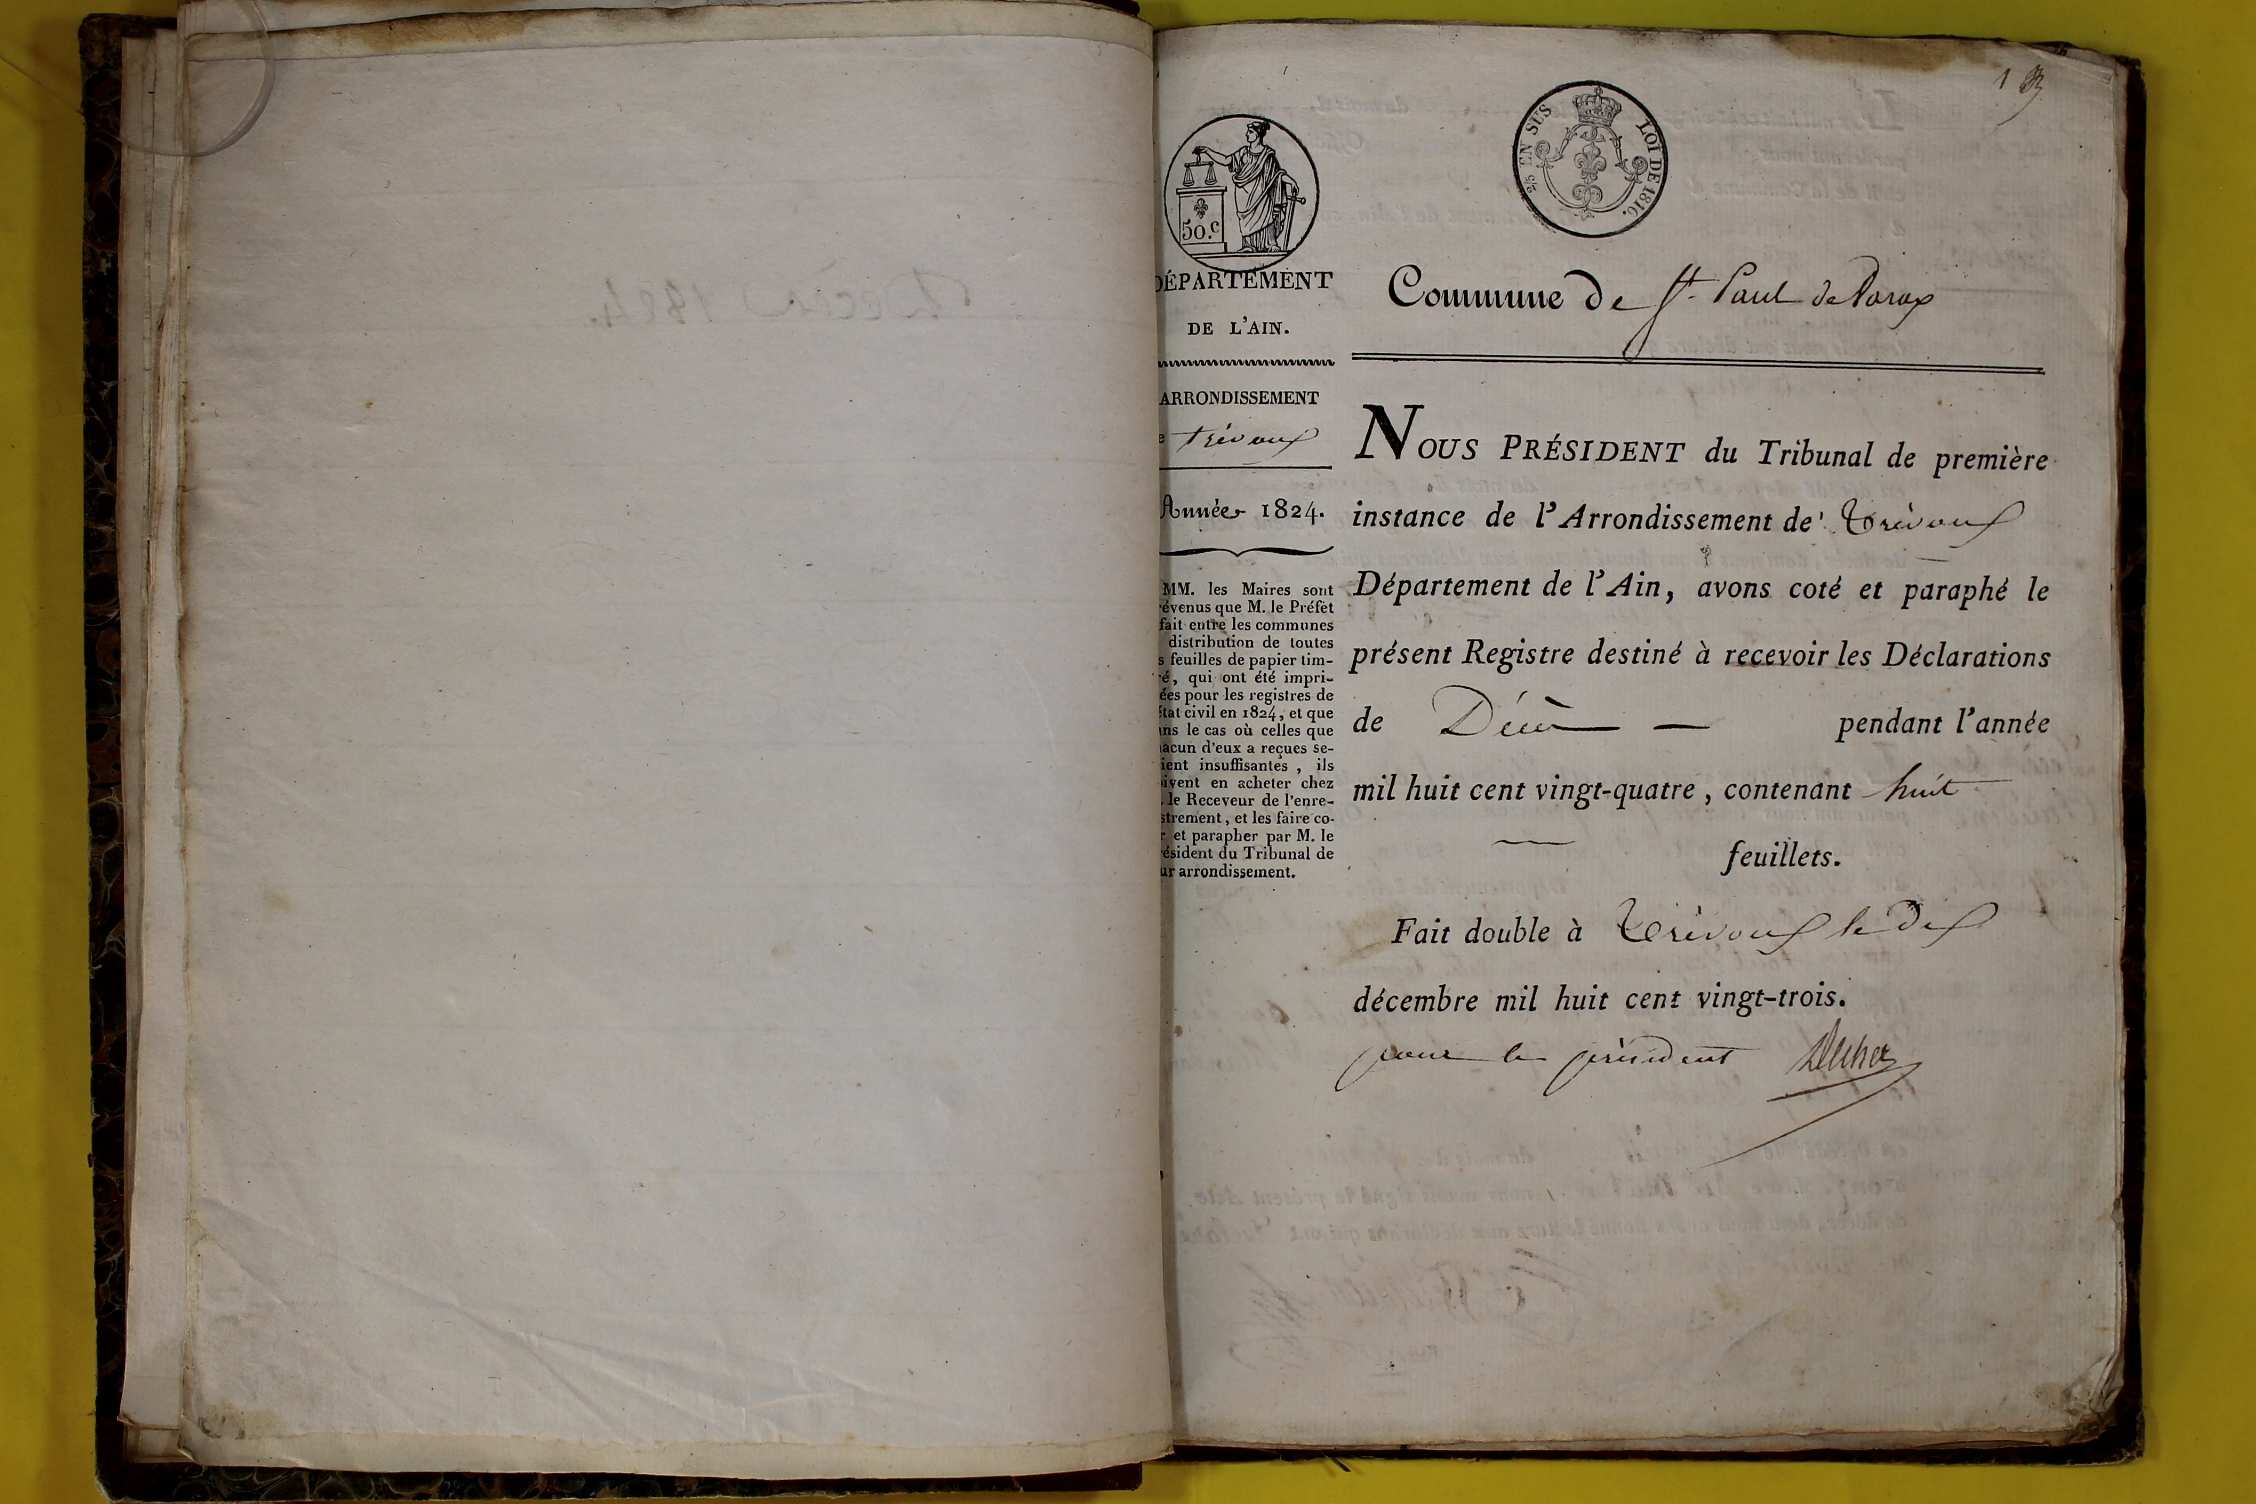 1
50.c
2/5 EN SUS LOI DE 1816.
DÉPARTEMENT
DE L'AIN.
ARRONDISSEMENT
e Trévoux
Année 1824.
MM. les Maires sont
révenus que M. le Préfet
fait entre les communes
distribution de toutes
s feuilles de papier tim-
ré, qui ont été impri-
ées pour les registres de
état civil en 1824, et que
ans le cas où celles que
acun d'eux a reçues se-
ient insuffisantes, ils
ivent en acheter chez
. le Receveur de l'enre-
strement, et les faire co-
r et parapher par M. le
résident du Tribunal de
ur arrondissement.
Commune de St. Paul de Varax
NOUS PRÉSIDENT du Tribunal de première
instance de l'Arrondissement de Trévoux
Département de l'Ain, avons coté et paraphé le
présent Registre destiné à recevoir les Déclarations
de Décès — pendant l'année
mil huit cent vingt-quatre, contenant huit
— feuillets.
Fait double à Trévoux le dix
décembre mil huit cent vingt-trois.
pour le président